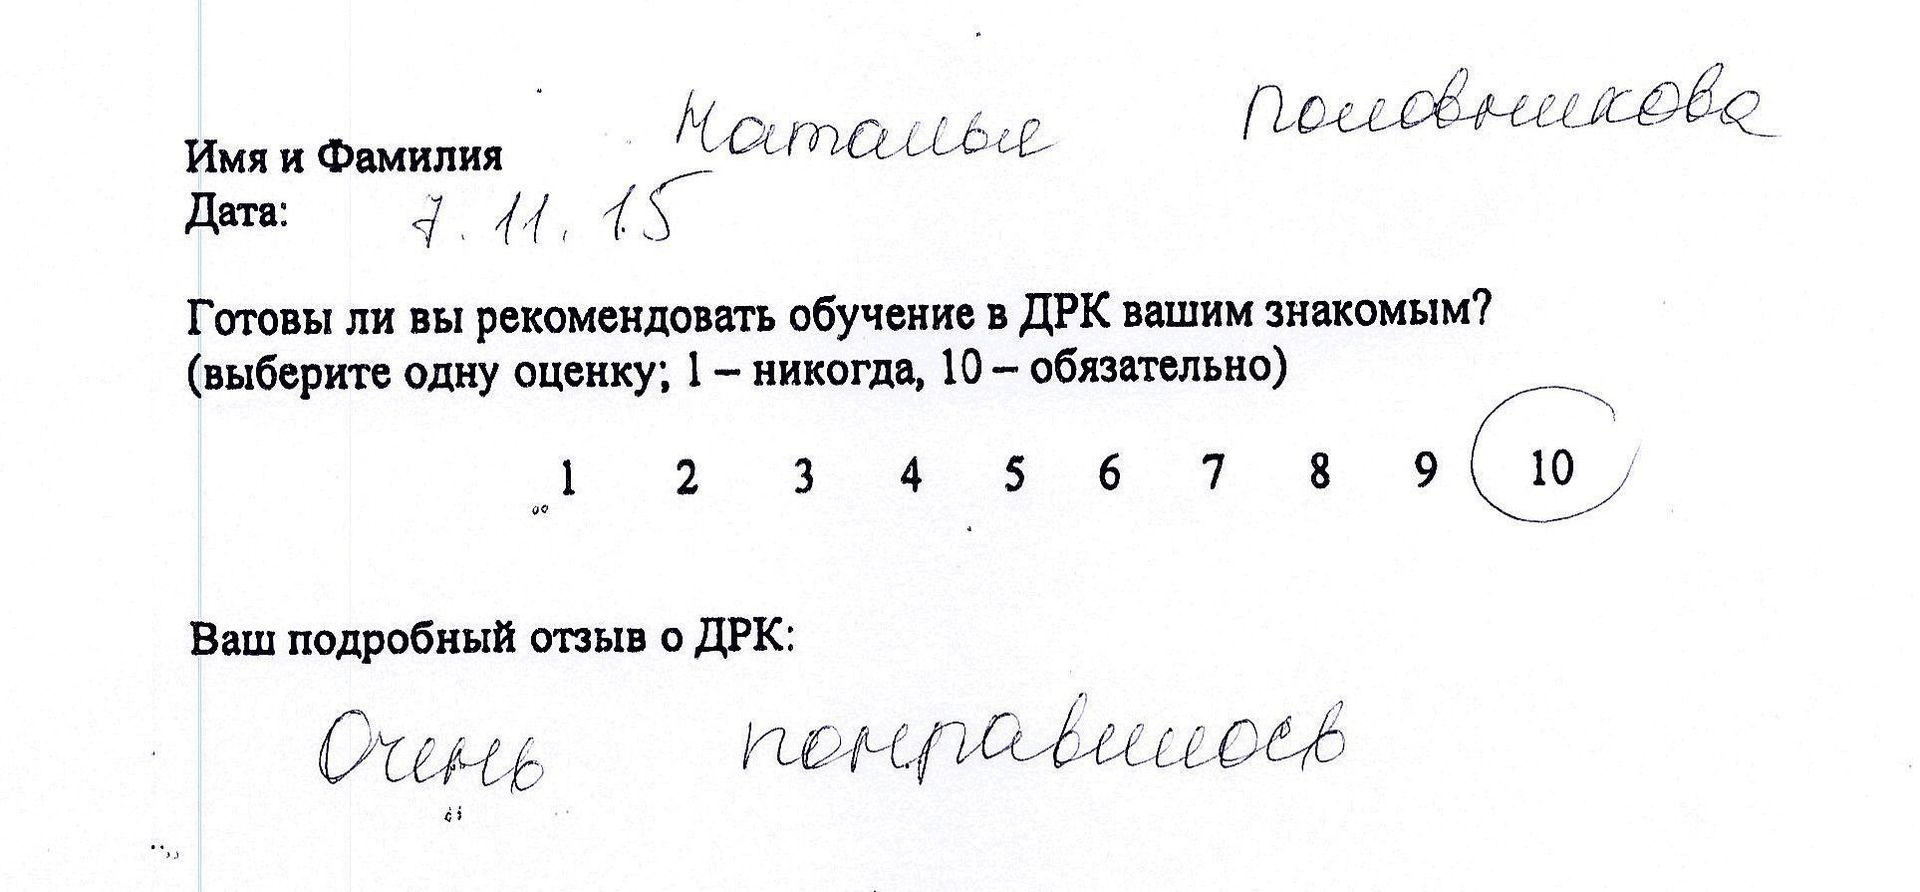 Имя и Фамилия Наталья Половникова
Дата: 7.11.15
Готовы ли вы рекомендовать обучение в ДРК вашим знакомым?
(выберите одну оценку; 1 – никогда, 10 – обязательно)
1 2 3 4 5 6 7 8 9 10
Ваш подробный отзыв о ДРК:
Очень понравилось